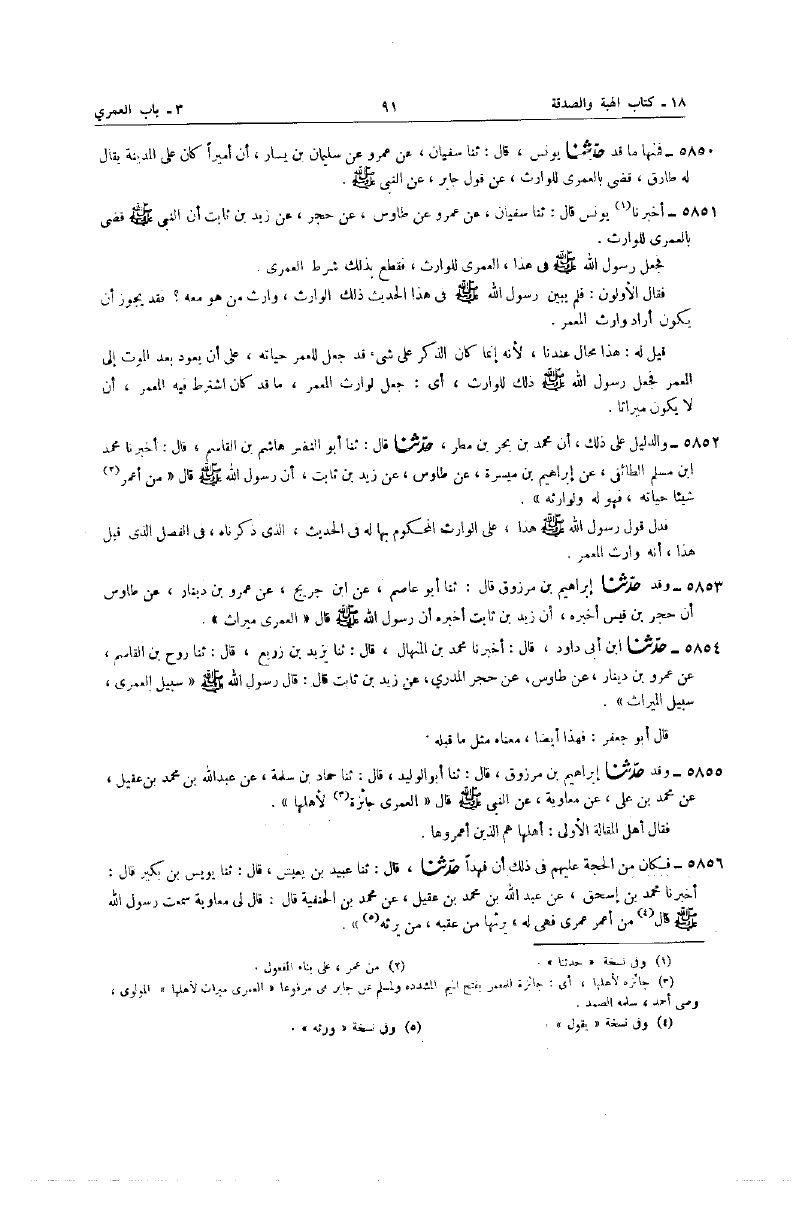 ١٨ ـ كتاب الهبة والصدقة ٩١ ٣ ـ باب العمري
٥٨٥٠ ـ فمنها ما قد حَدَّثَنَا يونس ، قال : ثنا سفيان ، عن عمرو عن سليمان بن يسار ، أن أميراً كان على المدينة يقال
له طارق ، قضى بالعمرى للوارث ، عن قول جابر ، عن النبي ﷺ .
٥٨٥١ ـ أخبرنا(١) يونس قال : ثنا سفيان ، عن عمرو عن طاوس ، عن حجر ، عن زيد بن ثابت أن النبي ﷺ قضى
بالعمرى للوارث .
فجعل رسول الله ﷺ فى هذا ، العمرى للوارث ، فقطع بذلك شرط العمرى .
فقال الأولون : فلم يبين رسول الله ﷺ فى هذا الحديث ذلك الوارث ، وارث من هو معه ؟ فقد يجوز أن
يكون أراد وارث المعمر .
قيل له : هذا محال عندنا ، لأنه إنما كان الذكر على شىء قد جعل للمعمر حياته ، على أن يعود بعد الموت إلى
المعمر فجعل رسول الله ﷺ ذلك للوارث ، أى : جعل لوارث المعمر ، ما قد كان اشترط فيه المعمر ، أن
لا يكون ميراثا .
٥٨٥٢ ـ والدليل على ذلك ، أن محمد بن بحر بن مطر ، حَدَّثَنَا قال : ثنا أبو النضر هاشم بن القاسم ، قال : أخبرنا محمد
ابن مسلم الطائفى ، عن إبراهيم بن ميسرة ، عن طاوس ، عن زيد بن ثابت ، أن رسول الله ﷺ قال « من أعمر(٢)
شيئا حياته ، فهو له ولوارثه » .
فدل قول رسول الله ﷺ هذا ، على الوارث المحكوم بها له فى الحديث ، الذى ذكرناه ، فى الفصل الذى قبل
هذا ، أنه وارث المعمر .
٥٨٥٣ ـ وقد حَدَّثَنَا إبراهيم بن مرزوق قال : ثنا أبو عاصم ، عن ابن جريج ، عن عمرو بن دينار ، عن طاوس
أن حجر بن قيس أخبره ، أن زيد بن ثابت أخبره أن رسول الله ﷺ قال « العمرى ميراث » .
٥٨٥٤ ـ حَدَّثَنَا ابن أبى داود ، قال : أخبرنا محمد بن المنهال ، قال : ثنا يزيد بن زريع ، قال : ثنا روح بن القاسم ،
عن عمرو بن دينار ، عن طاوس، عن حجر المدري، عن زيد بن ثابت قال : قال رسول الله ﷺ « سبيل العمرى ،
سبيل الميراث » .
قال أبو جعفر : فهذا أيضا ، معناه مثل ما قبله .
٥٨٥٥ ـ وقد حَدَّثَنَا إبراهيم بن مرزوق ، قال : ثنا أبو الوليد ، قال : ثنا حماد بن سلمة ، عن عبدالله بن محمد بن عقيل ،
عن محمد بن على ، عن معاوية ، عن النبى ﷺ قال « العمرى جائزة(٣) لأهلها » .
فقال أهل المقالة الأولى : أهلها هم الذين أعمروها .
٥٨٥٦ ـ فكان من الحجة عليهم فى ذلك أن فهداً حَدَّثَنَا ، قال : ثنا عبيد بن يعيش ، قال : ثنا يونس بن بكير قال :
أخبرنا محمد بن إسحق ، عن عبد الله بن محمد بن عقيل ، عن محمد بن الحنفية قال : قال لى معاوية سمعت رسول الله
ﷺ قال(٤) من أعمر عمرى فهى له ، يرثها من عقبه ، من يرثه(٥) » .
(١) وفى نسخة « حدثنا » . (٢) من عمر ، على بناء المفعول .
(٣) جائزة لأهلها ، أى : جائزة للمعمر بفتح الميم المشددة ولمسلم عن جابر فى مرفوعا « العمرى ميراث لأهلها » المولوى ،
وصى أحمد ، سلمه الصمد .
(٤) وفى نسخة « يقول » . (٥) وفى نسخة « ورثه » .